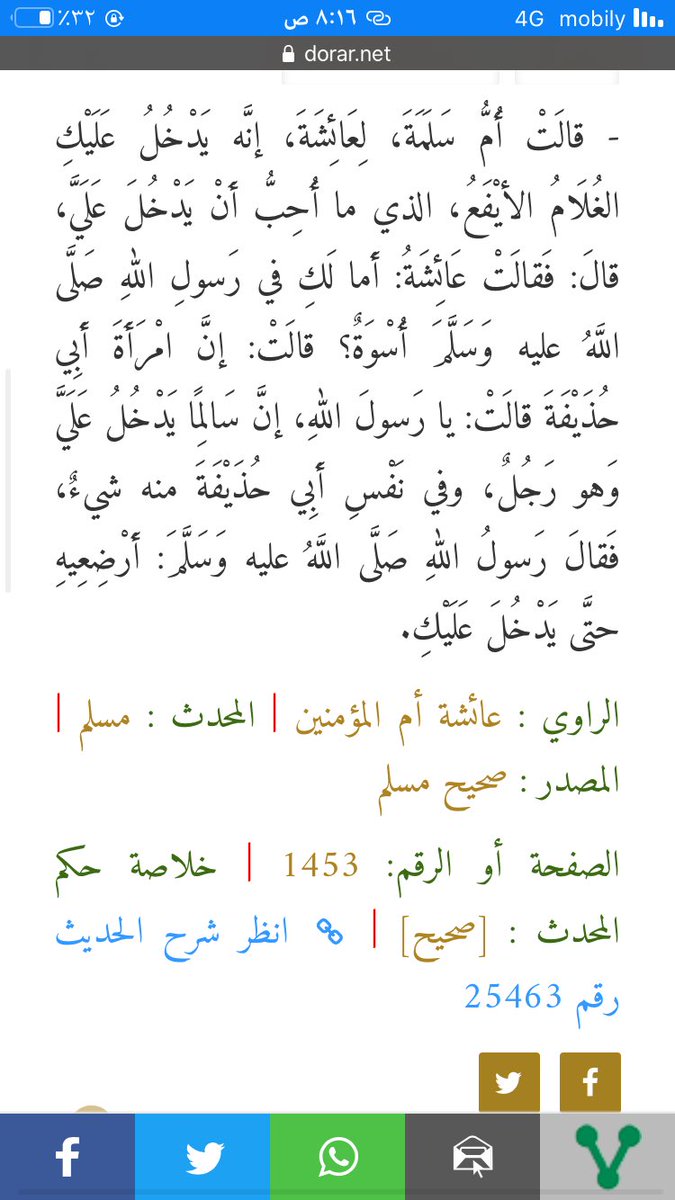 ٪٣٢ ٨:١٦ ص 4G mobily
dorar.net
- قالَتْ أُمُّ سَلَمَةَ، لِعَائِشَةَ، إنَّه يَدْخُلُ عَلَيْكِ
الغُلَامُ الأيْفَعُ، الذي ما أُحِبُّ أَنْ يَدْخُلَ عَلَيَّ،
قالَ: فَقالَتْ عَائِشَةُ: أَما لَكِ في رَسولِ اللهِ صَلَّى
اللَّهُ عليه وَسَلَّمَ أُسْوَةٌ؟ قالَتْ: إنَّ امْرَأَةَ أَبِي
حُذَيْفَةَ قالَتْ: يا رَسولَ اللهِ، إنَّ سَالِمًا يَدْخُلُ عَلَيَّ
وَهو رَجُلٌ، وفي نَفْسِ أَبِي حُذَيْفَةَ منه شيءٌ،
فَقالَ رَسولُ اللهِ صَلَّى اللَّهُ عليه وَسَلَّمَ: أَرْضِعِيهِ
حتَّى يَدْخُلَ عَلَيْكِ.
الراوي : عائشة أم المؤمنين | المحدث : مسلم |
المصدر : صحيح مسلم
الصفحة أو الرقم: 1453 | خلاصة حكم
المحدث : [صحيح] | انظر شرح الحديث
رقم 25463